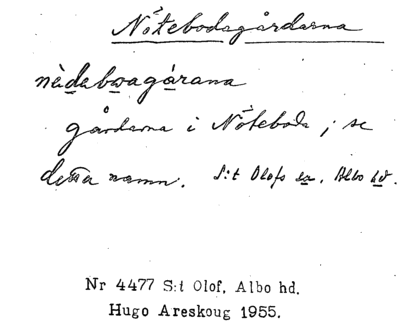 Nötebodagårdarna
nèdabwagárana
gårdarna i Nöteboda; se
detta namn. S:t Olofs sn. Albo hd.
Nr 4477 S:t Olof, Albo hd.
Hugo Areskoug 1955.